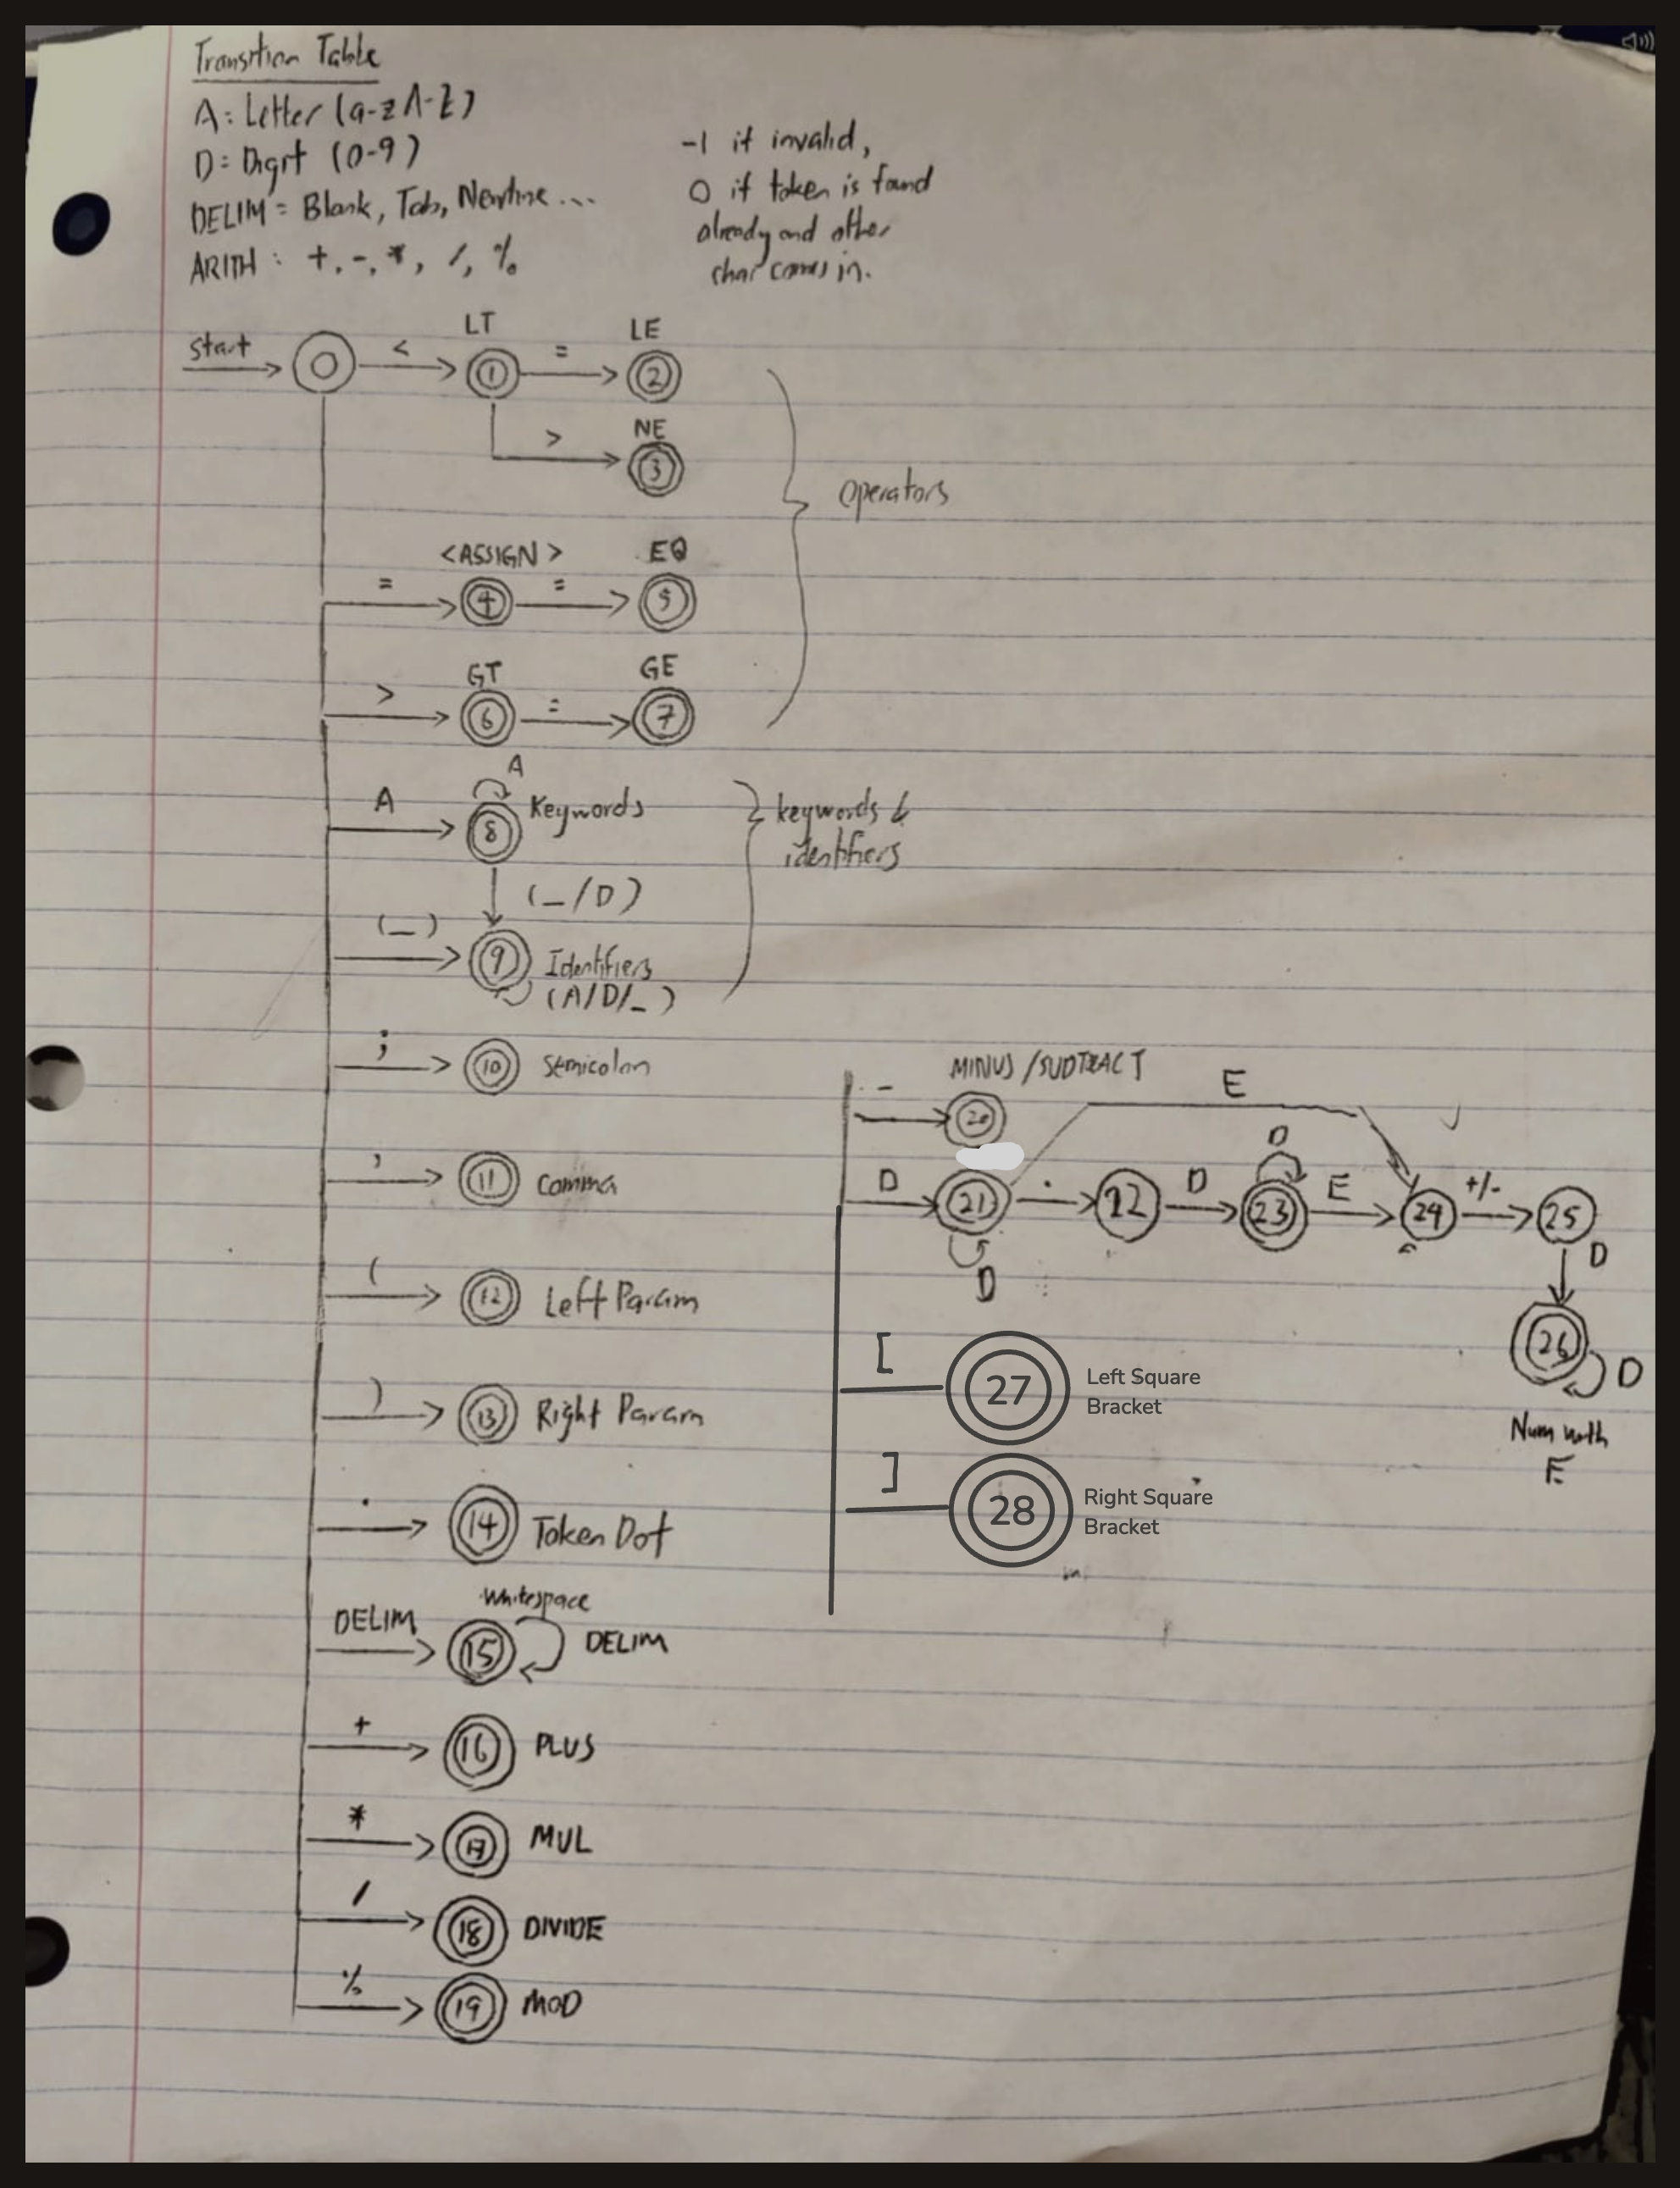 Transition Table
A: Letter (a-z A-Z)
D: Digit (0-9)
DELIM = Blank, Tab, Newline ...
ARITH : +, -, *, /, %
-1 if invalid,
0 if token is found
already and other
char comes in.
start
0
<
LT
1
=
LE
2
>
NE
3
Operators
=
<ASSIGN>
4
=
EQ
5
>
GT
6
=
GE
7
A
A
8
Keywords
keywords &
identifiers
(_/D)
(_)
9
Identifiers
(A/D/_)
;
10
Semicolon
,
11
Comma
(
12
Left Param
)
13
Right Param
.
14
Token Dot
DELIM
Whitespace
15
DELIM
+
16
PLUS
*
17
MUL
/
18
DIVIDE
%
19
MOD
-
MINUS / SUDTRACT
20
E
D
21
D
.
22
D
D
23
E
24
+/-
25
D
26
D
Num with
E
[
27
Left Square
Bracket
]
28
Right Square
Bracket